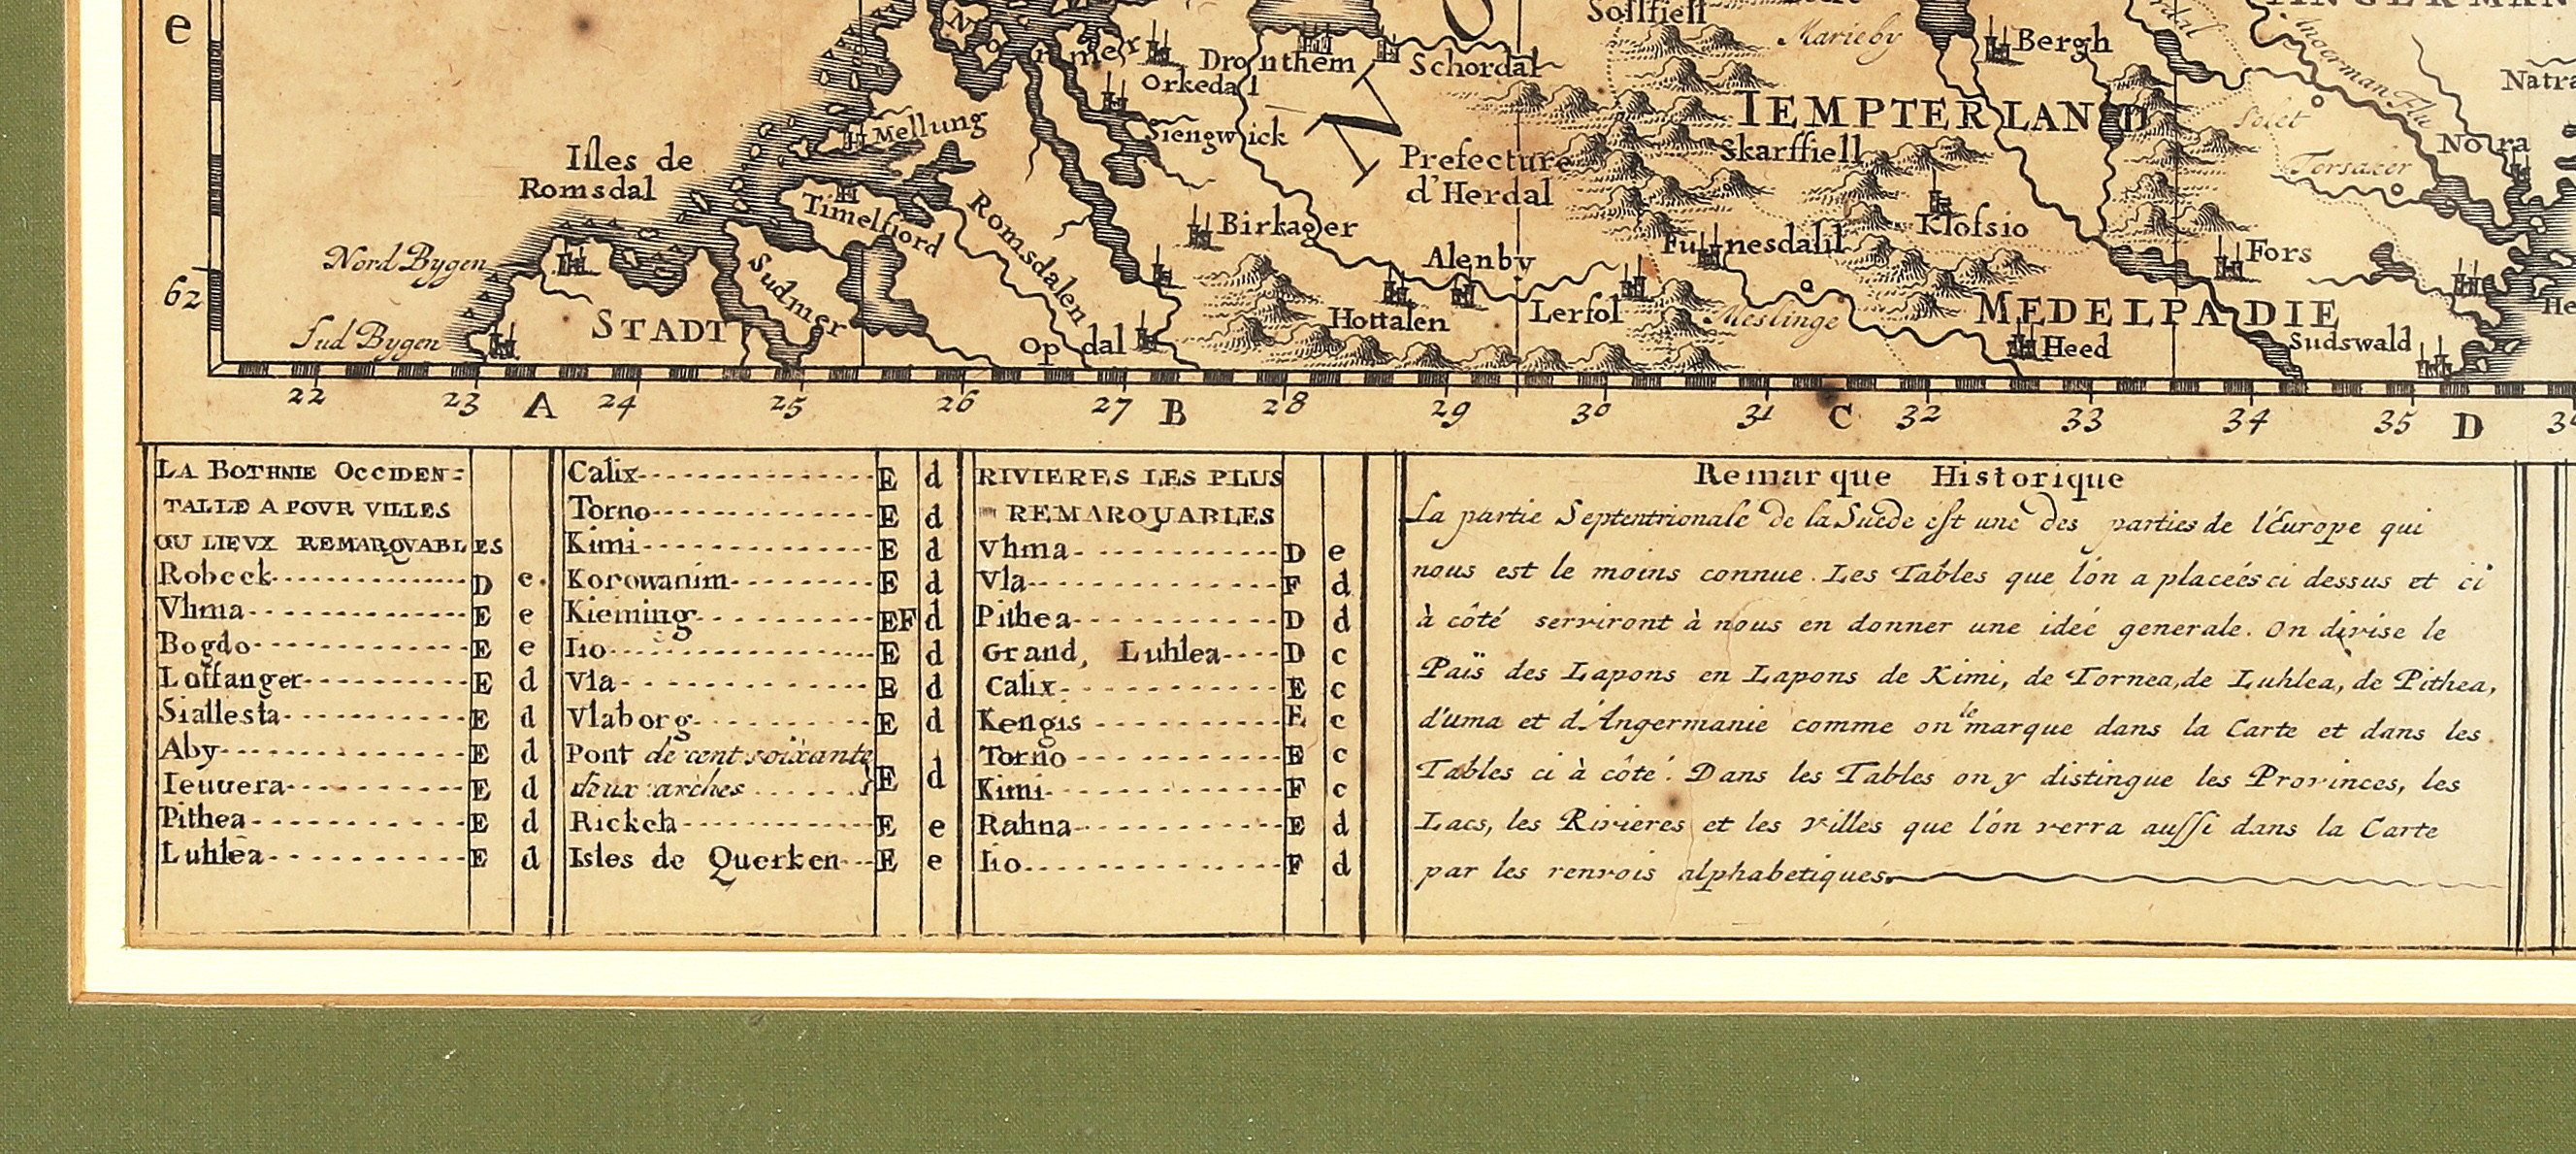 e
Sollfiell
Marieby
Bergh
Nommer
Orkedal
Dronthem
Schordal
Natra
IEMPTERLAND
Mellung
Siengwick
N
Angerman Flu
Solet
Notra
Isles de
Romsdal
Prefecture
d'Herdal
Skarsfiell
Torsaker
Timelfiord
Romsdalen
Birkager
Klofsio
Nord Bygen
Sudmer
Alenby
Funnesdalil
Fors
62
STADT
Hottalen
Lerfol
Meslinge
MEDELPADIE
He
Sud Bygen
Opdal
Heed
Sudswald
22 23 A 24 25 26 27 B 28 29 30 31 C 32 33 34 35 D
LA BOTHNIE OCCIDEN=
TALLE A POVR VILLES
OU LIEVX REMARQVABLES
Robeck D e.
Vhma E e
Bogdo E e
Loffanger E d
Siallesta E d
Aby E d
Ieuuera E d
Pithea E d
Luhlea E d
Calix E d
Torno E d
Kimi E d
Korowanim E d
Kieming EF d
Iio E d
Vla E d
Vlaborg E d
Pont de cent soixante
deux arches } E d
Rickela E e
Isles de Querken E e
RIVIERES LES PLUS
REMARQUABLES
Vhma D e
Vla F d
Pithea D d
Grand, Luhlea D c
Calix E c
Kengis E c
Torno E c
Kimi F c
Rahna E d
Iio F d
Remarque Historique
La partie Septentrionale de la Suede est une des parties de l'Europe qui
nous est le moins connue. Les Tables que l'on a placeés ci dessus et ci
à côté serviront à nous en donner une ideé generale. On divise le
Païs des Lapons en Lapons de Kimi, de Tornea, de Luhlea, de Pithea,
d'uma et d'Angermanie comme on le marque dans la Carte et dans les
Tables ci à côté. Dans les Tables on y distingue les Provinces, les
Lacs, les Rivieres et les villes que l'on verra aussi dans la Carte
par les renvois alphabetiques.